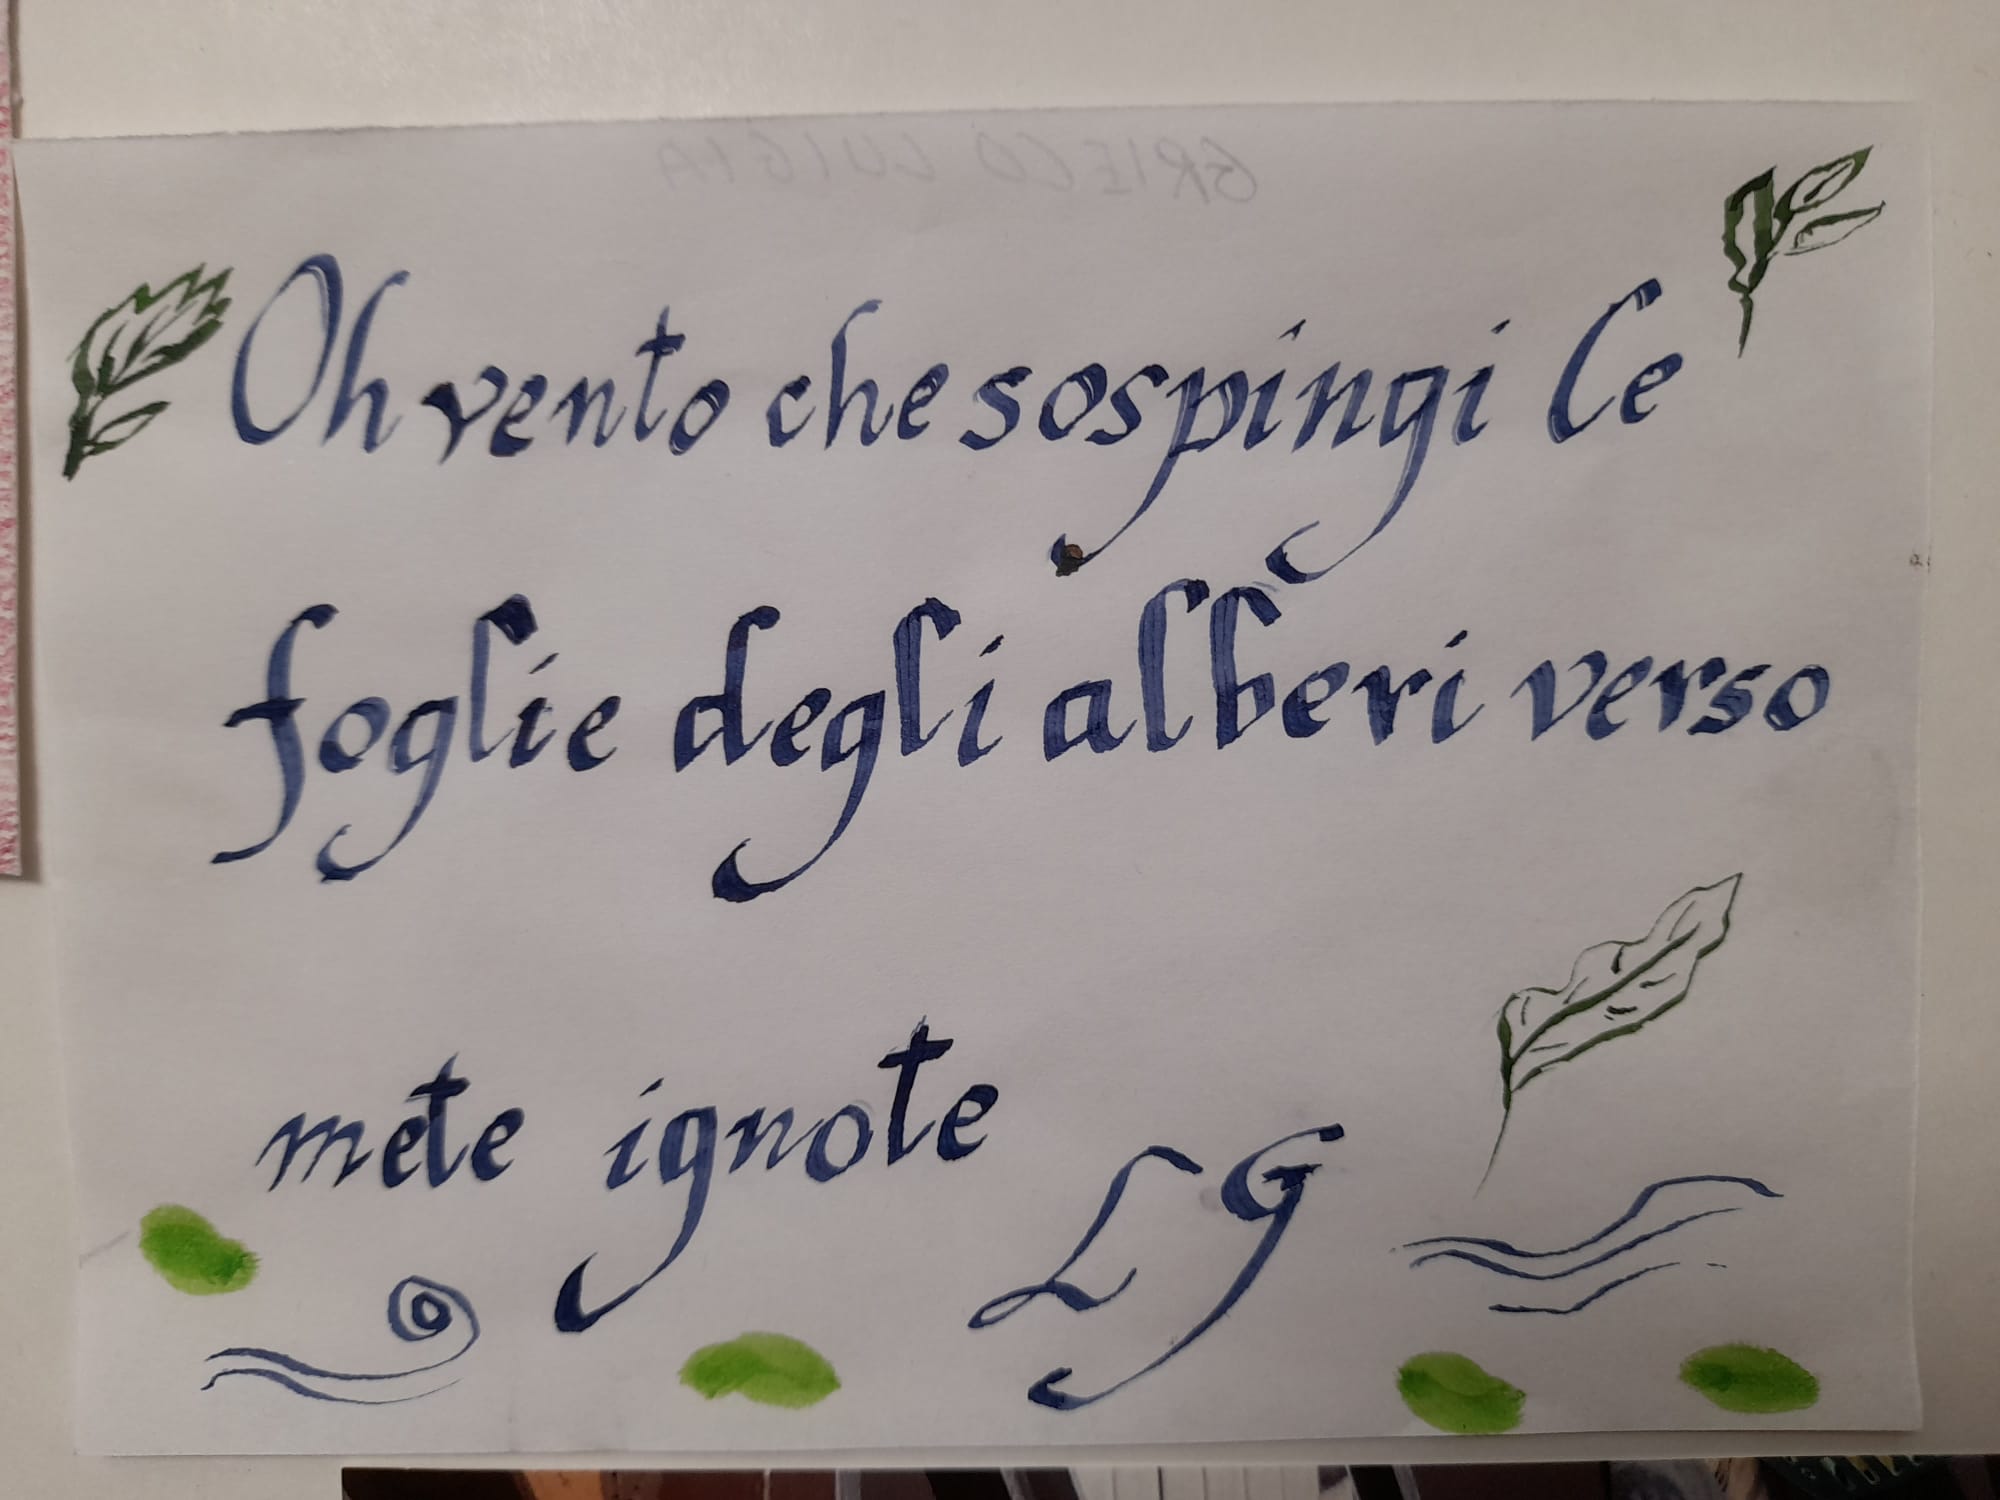 GRIECO LUIGIA
Oh vento che sospingi le
foglie degli alberi verso
mete ignote
LG